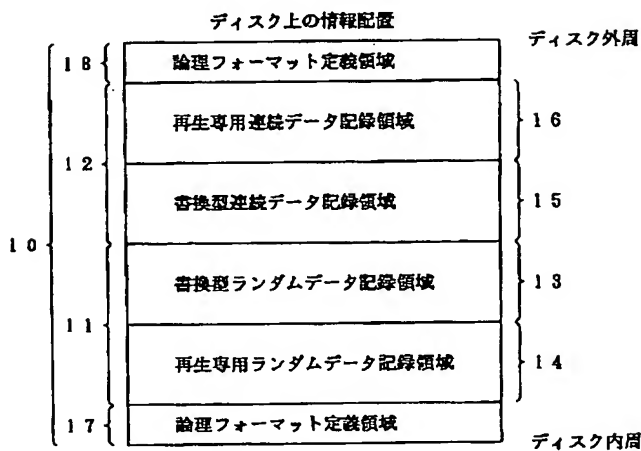 ディスク上の情報配置
ディスク外周
18 論理フォーマット定義領域
再生専用連続データ記録領域 16
12
書換型連続データ記録領域 15
10
書換型ランダムデータ記録領域 13
11
再生専用ランダムデータ記録領域 14
17 論理フォーマット定義領域
ディスク内周